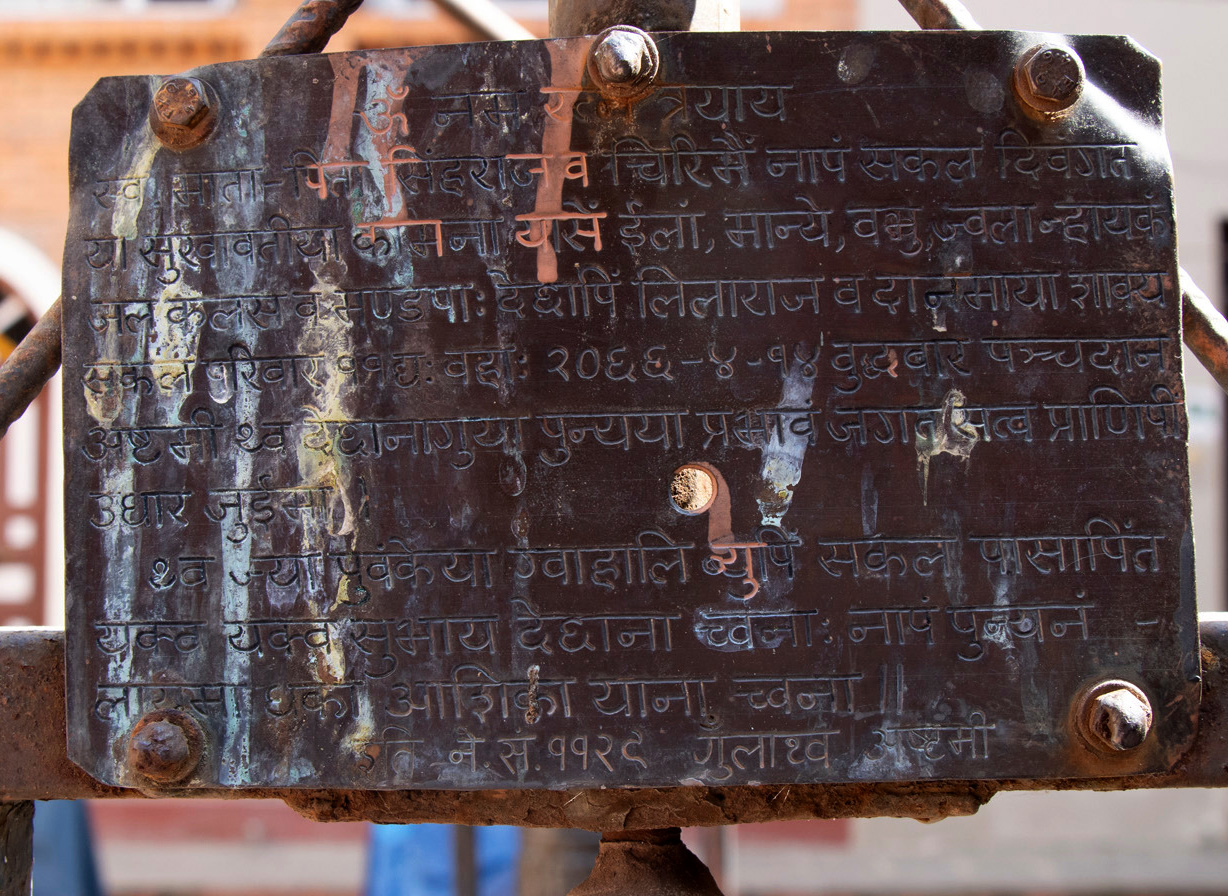 ॐ नम रत्न त्रयाय
स्व. माता-पिता सिंहराज व चिरिमैं नापं सकल दिवंगत
या सुखावतीया कामना यासें ईलां, मान्ये,
जल कलस व मण्डपाः देछापिं लिलाराज व दानमाया शाक्य
सकल परिवार ११द्यः वहाः २०६६-४-१४ वुद्धवार पञ्चदान
अष्टमी थ्व देछानागुया पुन्यया प्रभावं जगत सत्व प्राणिपीं
उधार जुईमा ।
थ्व ज्या पुवंकेया ग्वाहालि ब्यूपिं सकल पासापिंत
यक्व यक्व सुभाय देछाना च्वनाः नापं पुन्यनं -
लायेमा धका आशिका याना च्वना ॥
इति ने.सं.११२९ गुंलाथ्व अष्टमी